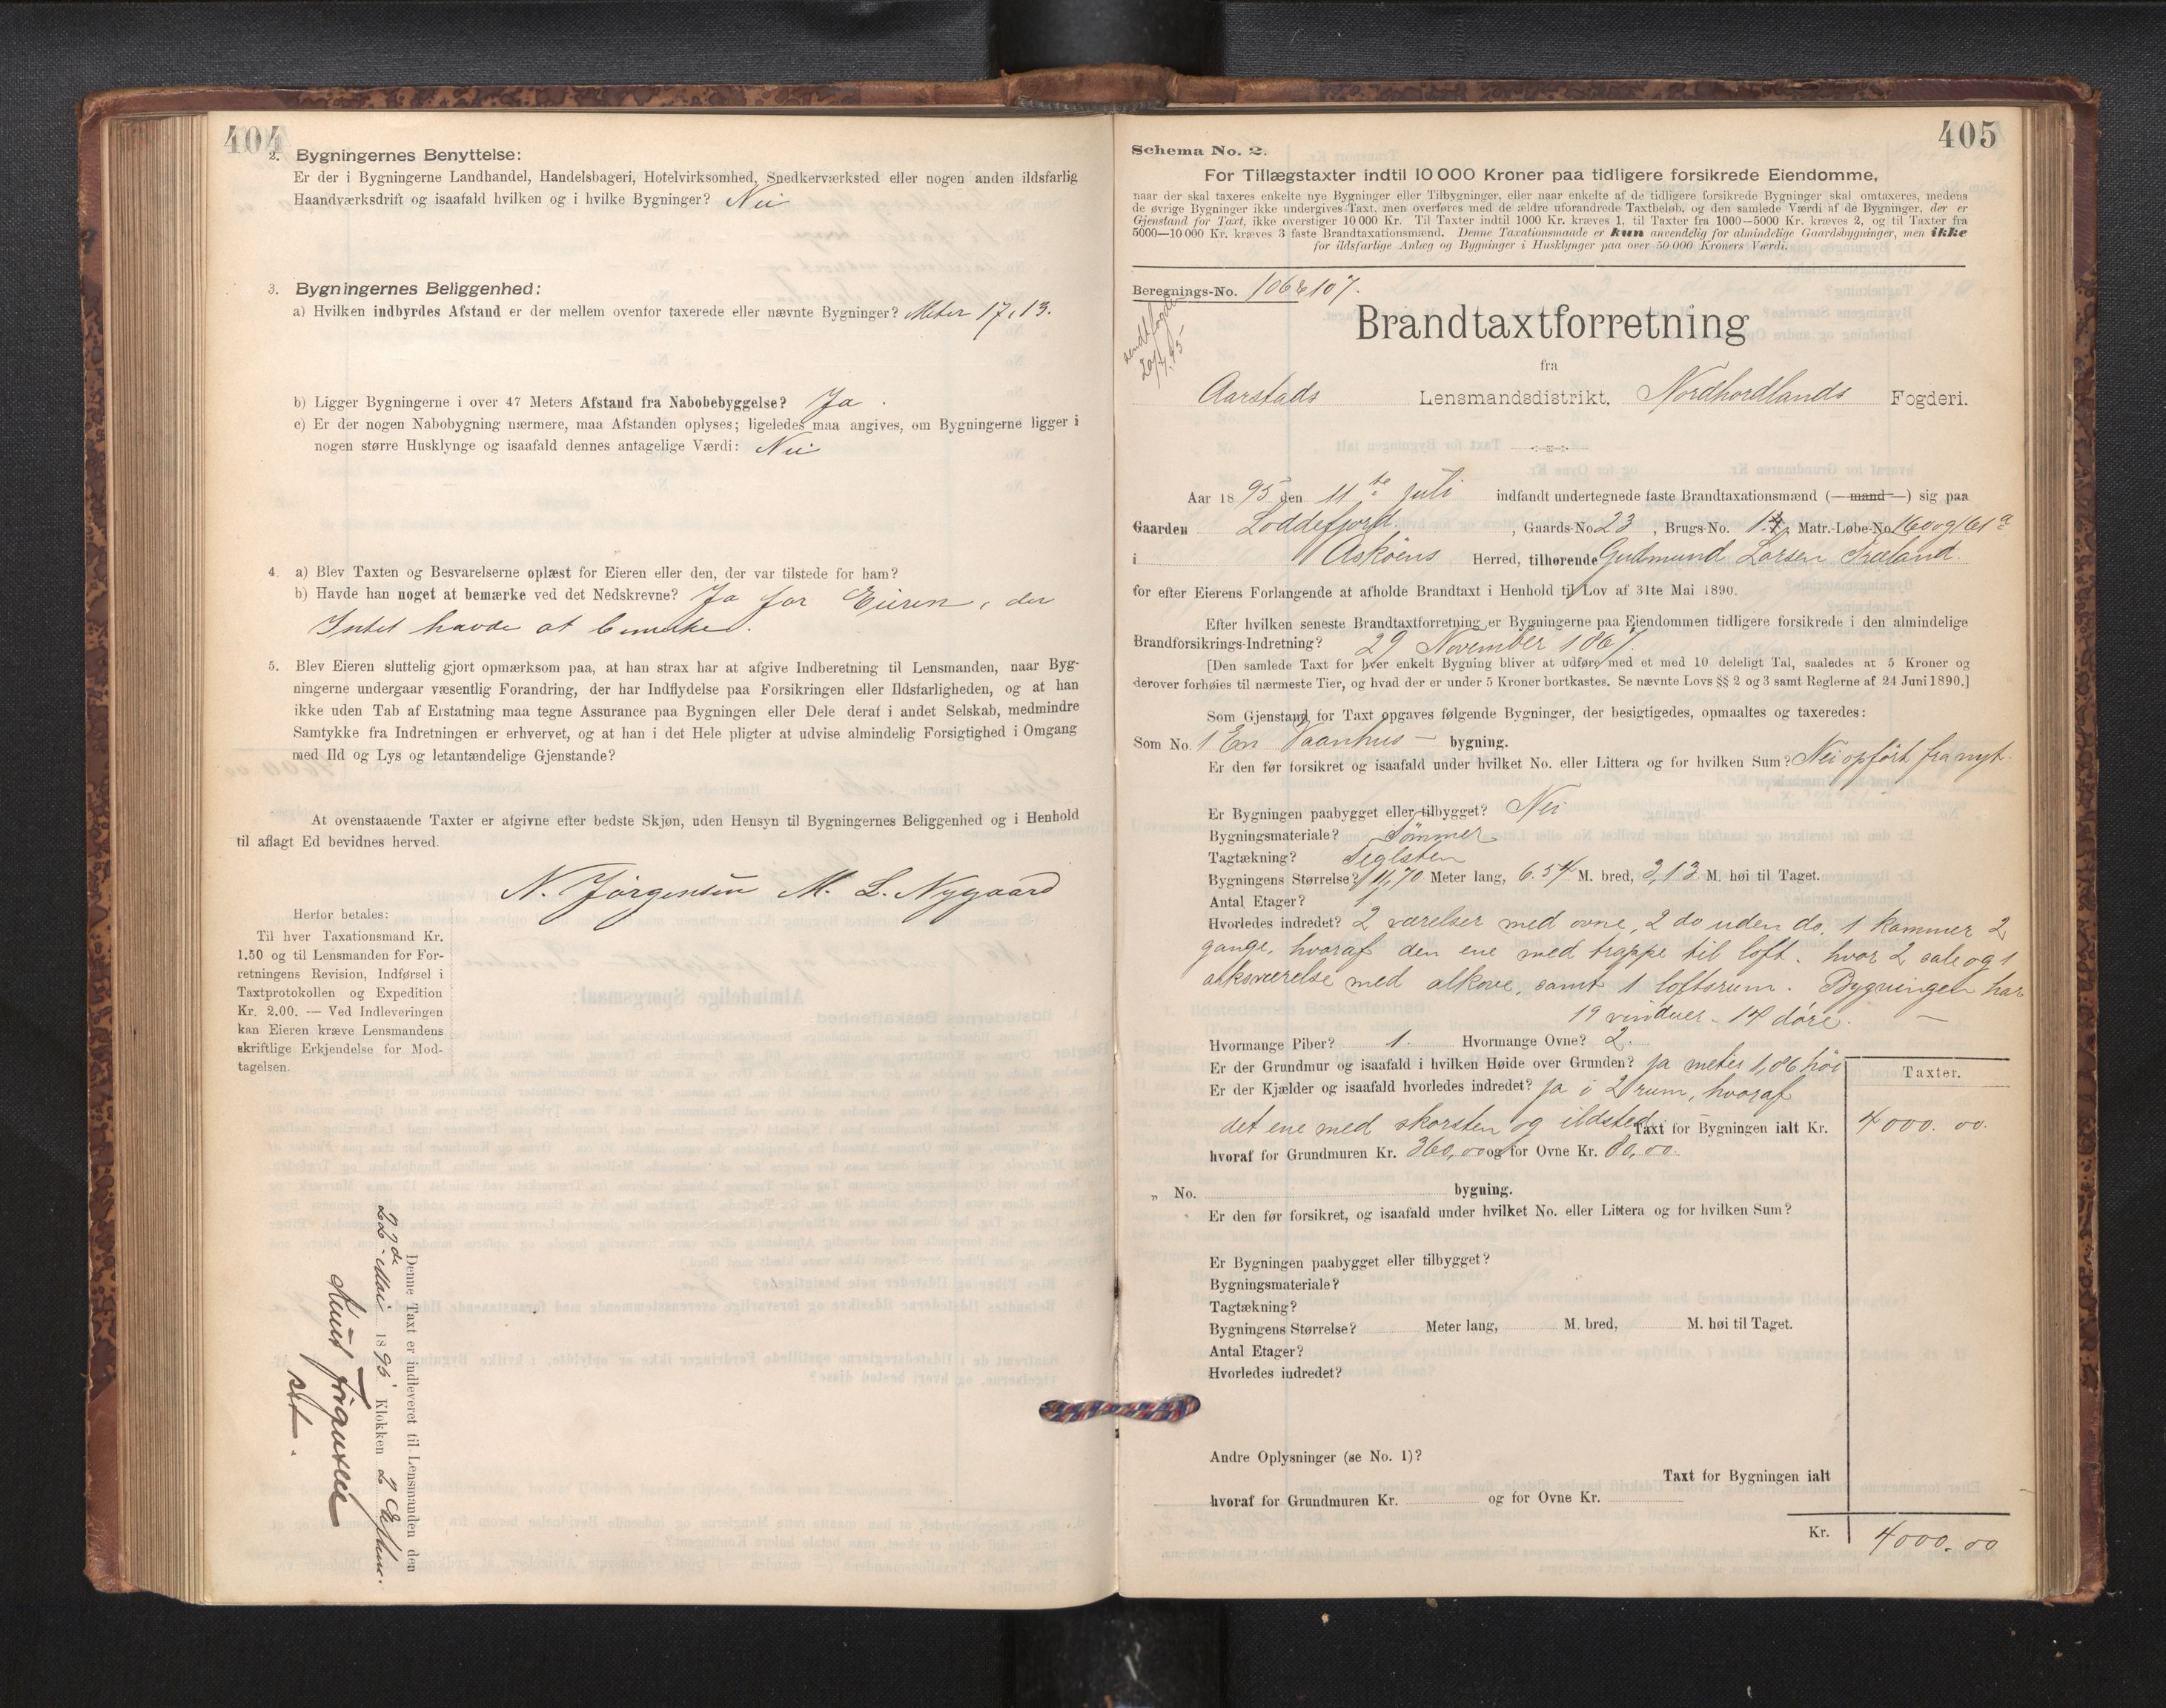 404
2. Bygningernes Benyttelse:
Er der i Bygningerne Landhandel, Handelsbageri, Hotelvirksomhed, Snedkerværksted eller nogen anden ildsfarlig
Haandværksdrift og isaafald hvilken og i hvilke Bygninger? Nei
3. Bygningernes Beliggenhed:
a) Hvilken indbyrdes Afstand er der mellem ovenfor taxerede eller nævnte Bygninger? Meter 17,13.
b) Ligger Bygningerne i over 47 Meters Afstand fra Nabobebyggelse? Ja.
c) Er der nogen Nabobygning nærmere, maa Afstanden oplyses; ligeledes maa angives, om Bygningerne ligger i
nogen større Husklynge og isaafald dennes antagelige Værdi: Nei
4. a) Blev Taxten og Besvarelserne oplæst for Eieren eller den, der var tilstede for ham?
b) Havde han noget at bemærke ved det Nedskrevne? Ja for Eieren, der
Intet havde at bemerke.
5. Blev Eieren sluttelig gjort opmærksom paa, at han strax har at afgive Indberetning til Lensmanden, naar Byg-
ningerne undergaar væsentlig Forandring, der har Indflydelse paa Forsikringen eller Ildsfarligheden, og at han
ikke uden Tab af Erstatning maa tegne Assurance paa Bygningen eller Dele deraf i andet Selskab, medmindre
Samtykke fra Indretningen er erhvervet, og at han i det Hele pligter at udvise almindelig Forsigtighed i Omgang
med Ild og Lys og letantændelige Gjenstande?
At ovenstaaende Taxter er afgivne efter bedste Skjøn, uden Hensyn til Bygningernes Beliggenhed og i Henhold
til aflagt Ed bevidnes herved.
N. Jørgensen M. L. Nygaard
Herfor betales:
Til hver Taxationsmand Kr.
1.50 og til Lensmanden for For-
retningens Revision, Indførsel i
Taxtprotokollen og Expedition
Kr. 2.00. — Ved Indleveringen
kan Eieren kræve Lensmandens
skriftlige Erkjendelse for Mod-
tagelsen.
Denne Taxt er indleveret til Lensmanden den
22de Mai 1895 Klokken 2 Eftm.
Knud Jörgensen
sst.
405
Schema No. 2.
For Tillægstaxter indtil 10 000 Kroner paa tidligere forsikrede Eiendomme,
naar der skal taxeres enkelte nye Bygninger eller Tilbygninger, eller naar enkelte af de tidligere forsikrede Bygninger skal omtaxeres, medens
de øvrige Bygninger ikke undergives Taxt, men overføres med de ældre uforandrede Taxtbeløb, og den samlede Værdi af de Bygninger, der er
Gjenstand for Taxt, ikke overstiger 10 000 Kr. Til Taxter indtil 1000 Kr. kræves 1, til Taxter fra 1000—5000 Kr. kræves 2, og til Taxter fra
5000—10 000 Kr. kræves 3 faste Brandtaxationsmænd. Denne Taxationsmaade er kun anvendelig for almindelige Gaardsbygninger, men ikke
for ildsfarlige Anlæg og Bygninger i Husklynger paa over 50 000 Kroners Værdi.
Beregnings-No. 106 & 107.
sendt fogden
20/7 95
Brandtaxtforretning
fra
Aarstads Lensmandsdistrikt, Nordhordlands Fogderi.
Aar 1895 den 11te Juli indfandt undertegnede faste Brandtaxationsmænd (—mand—) sig paa
Gaarden Loddefjord, Gaards-No. 23, Brugs-No. 1, Matr.-Løbe-No. 160 og 161a
i Askøens Herred, tilhørende Gudmund Larsen Iræland
for efter Eierens Forlangende at afholde Brandtaxt i Henhold til Lov af 31te Mai 1890.
Efter hvilken seneste Brandtaxtforretning er Bygningerne paa Eiendommen tidligere forsikrede i den almindelige
Brandforsikrings-Indretning? 29 November 1867.
[Den samlede Taxt for hver enkelt Bygning bliver at udføre med et med 10 deleligt Tal, saaledes at 5 Kroner og
derover forhøies til nærmeste Tier, og hvad der er under 5 Kroner bortkastes. Se nævnte Lovs §§ 2 og 3 samt Reglerne af 24 Juni 1890.]
Som Gjenstand for Taxt opgaves følgende Bygninger, der besigtigedes, opmaaltes og taxeredes:
Som No. 1 En Vaanhus — bygning.
Er den før forsikret og isaafald under hvilket No. eller Littera og for hvilken Sum? Nei opført fra nyt.
Er Bygningen paabygget eller tilbygget? Nei
Bygningsmateriale? Tømmer
Tagtækning? Teglsten
Bygningens Størrelse? 11,70 Meter lang, 6.54 M. bred, 3,13 M. høi til Taget.
Antal Etager? 1
Hvorledes indredet? 2 værelser med ovne, 2 do uden do, 1 kammer 2
gange, hvoraf den ene med trappe til loft. hvor 2 sale og 1
arksværelse med alkove, samt 1 loftsrum. Bygningen har
19 vinduer - 14 döre. —
Hvormange Piber? 1. Hvormange Ovne? 2.
Er der Grundmur og isaafald i hvilken Høide over Grunden? Ja meter 1,86 høi
Er der Kjælder og isaafald hvorledes indredet? Ja i 2 rum, hvoraf
det ene med skorsten og ildsted Taxt for Bygningen ialt Kr.
Taxter.
4000.00.
hvoraf for Grundmuren Kr. 360,00 og for Ovne Kr. 80,00.
„ No. bygning.
Er den før forsikret, og isaafald under hvilket No. eller Littera og for hvilken Sum?
Er Bygningen paabygget eller tilbygget?
Bygningsmateriale?
Tagtækning?
Bygningens Størrelse? Meter lang, M. bred, M. høi til Taget.
Antal Etager?
Hvorledes indredet?
Andre Oplysninger (se No. 1)?
Taxt for Bygningen ialt
hvoraf for Grundmuren Kr. og for Ovne Kr.
Kr. 4000.00